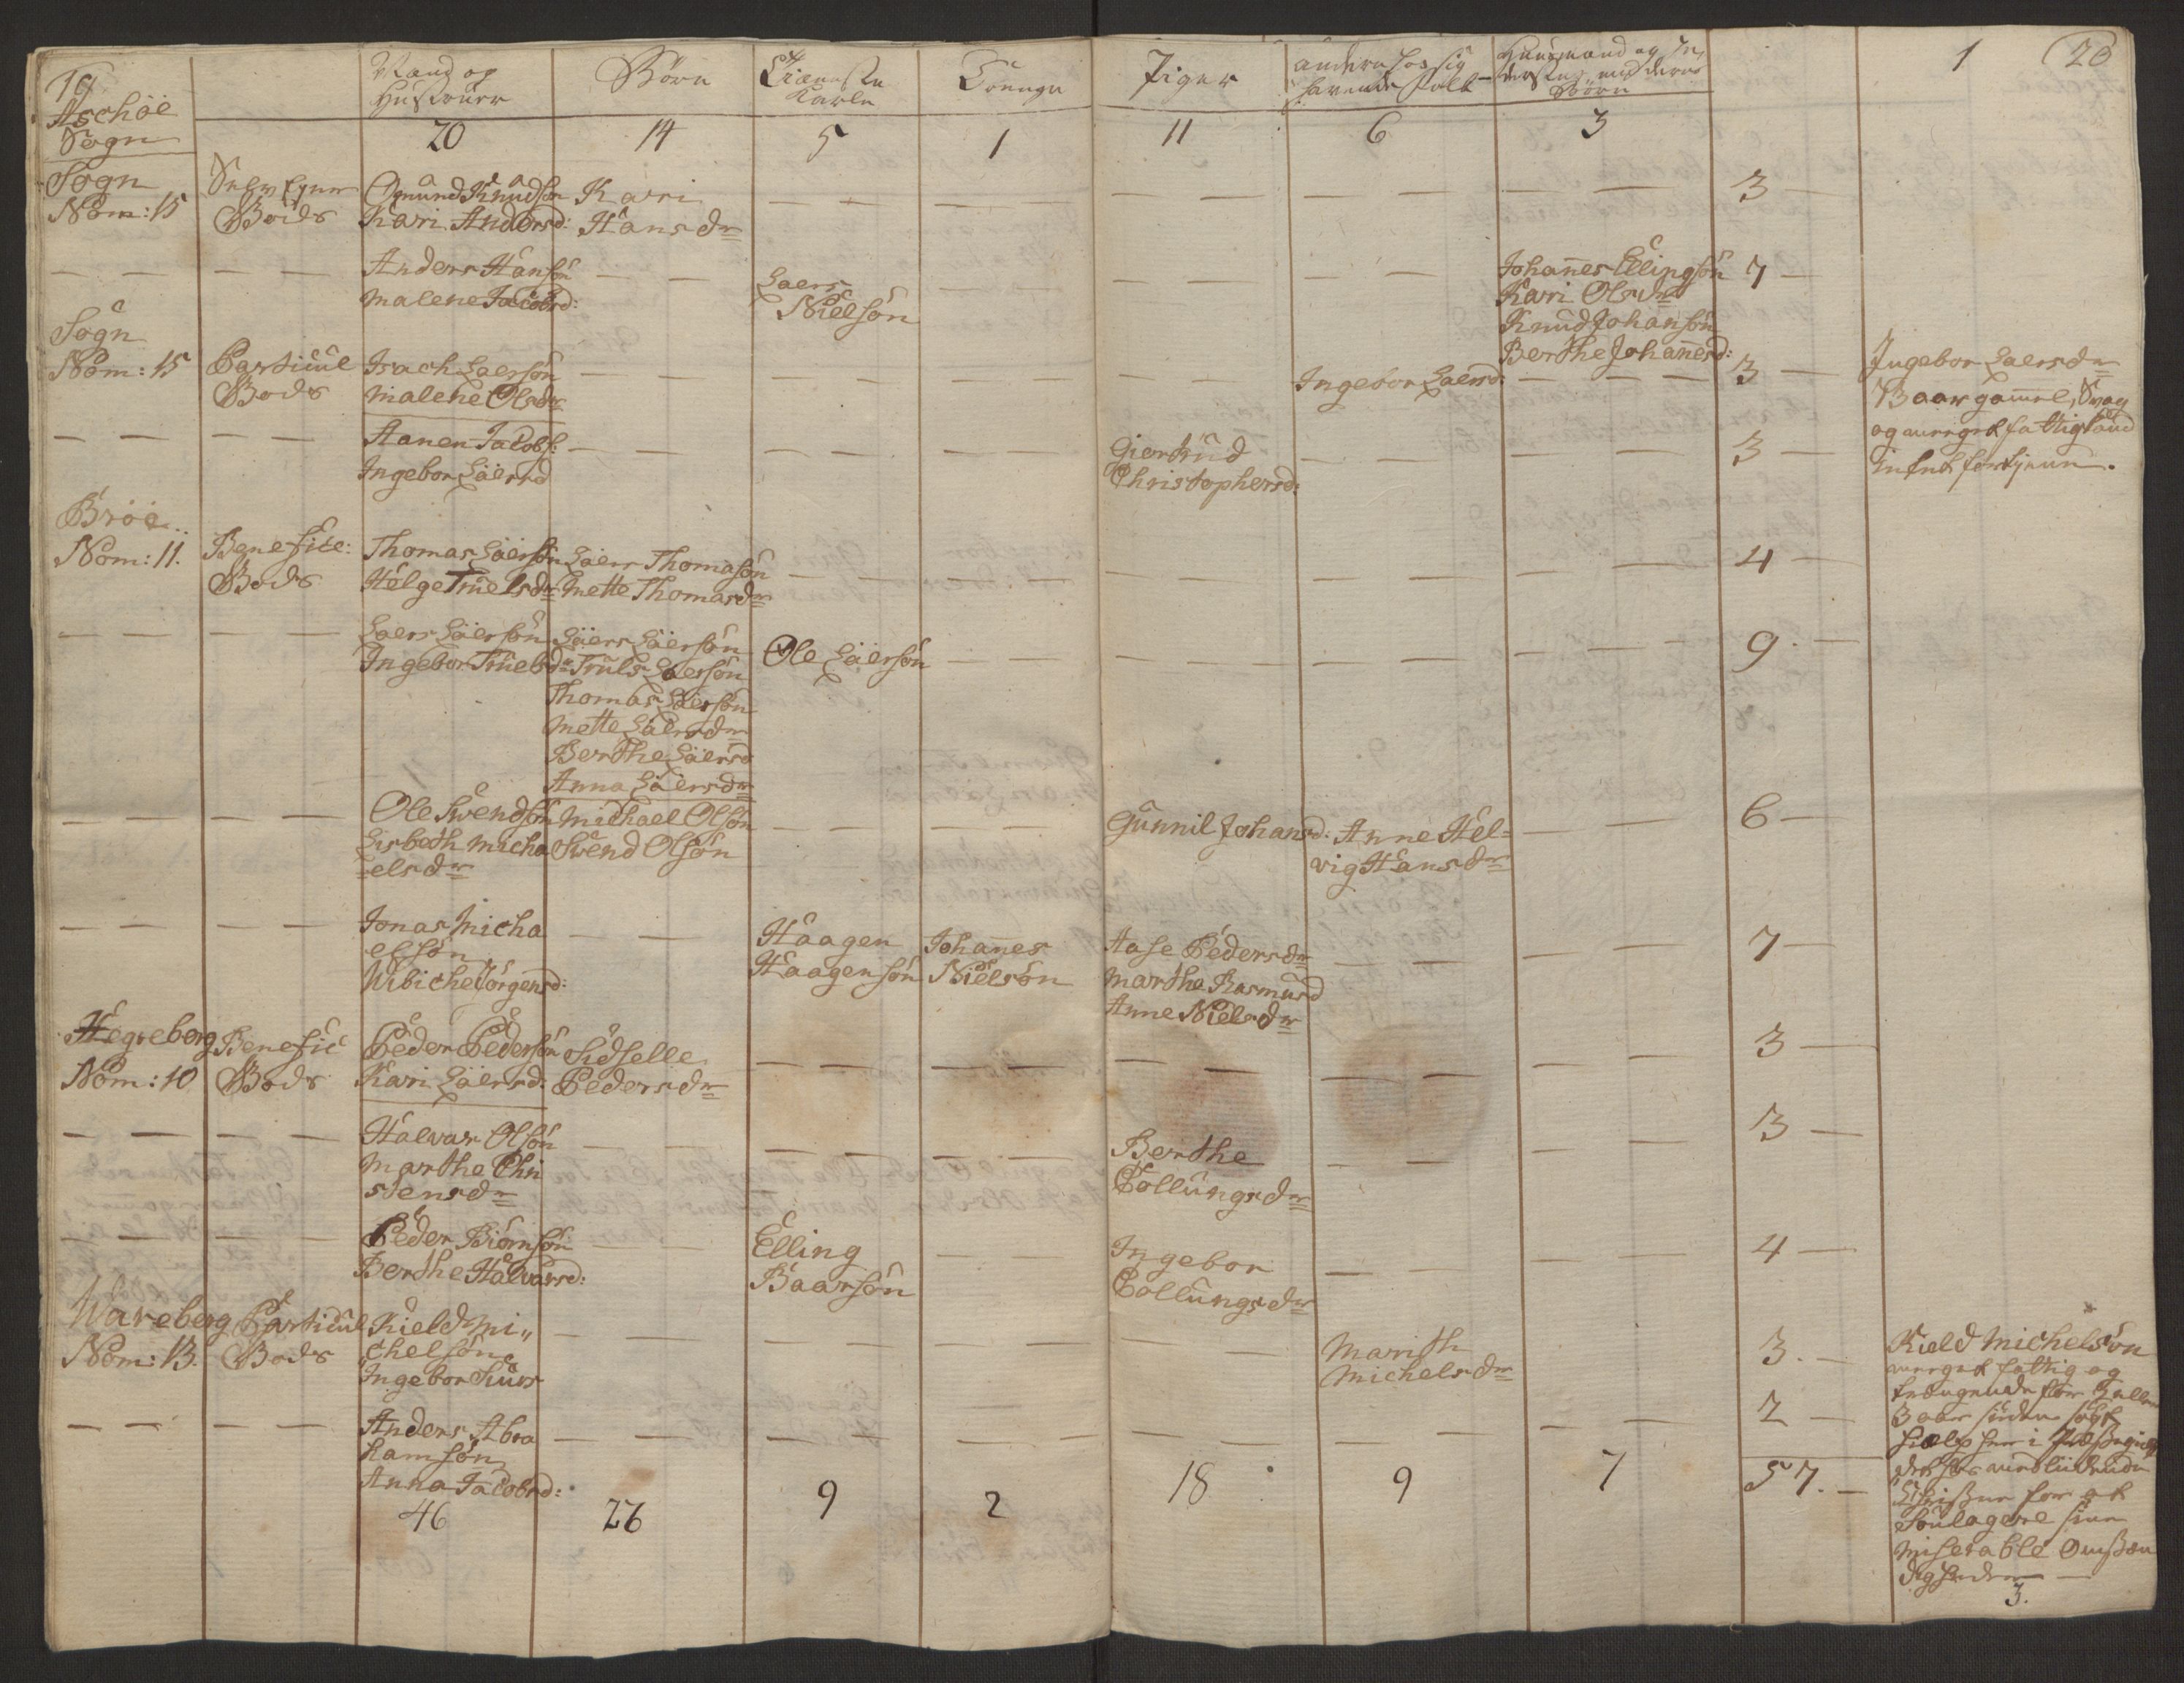 19
Aschöe
Sogn
Mand og
Hustruer
Börn
Tieneste
Karle
Drenge
Piger
andern hos sig
havende folk
Huusmænd og In,
derster med deres
Börn
1
20
20
14
5
1
11
6
3
Sogn
Nom: 15
Selv Eyner
Bods
Omund Knudsön
Kari Andersd:
Kari
Hansdr
— — — — — — — — — — 3 —
— — — —
Anders Hansön
Malene Jacobsd:
— —
Laers
Nielsön
— — — — — —
Johannes Ellingsön
Kari Olsdr
Knud Johansön
Berthe Johannesd:
7 —
Sogn
Nom: 15
Particul
Bods
Isach Laersön
Malene Olsdr
— — — — — — — —
Ingebor Laersd:
— — — 3 —
Ingebor Laersdr
Baar gammel, Svag
og meeget fattig kand
intet fortjenne.
— — — —
Aanen Jacobs:
Ingebor Läersd
— — — — — —
Giertrud
Christophersd:
— — — — 3 —
Bröe
Nom: 11.
Benefice:
Bods
Thomas Läersön
Helge Truelsdr
Läers Thomasön
Mette Thomasdr
— — — — — — — — — — 4 —
— — — —
Laers Läersön
Ingebor Truelsdr
Läers Läersön
Truls Laersön
Thomas Läersön
Mette Läersdr
Berthe Läersd
Anna Läersdr
Ole Läersön
— — — — — — — — 9. —
— — — —
Ole Svendsön
Lisbeth Micha
elsdr
Michael Olsön
Svend Olsön
— — — —
Gunnil Johansd:
Anne Hel=
vig Hansdr
— — 6 —
— — — —
Jonas Micha
elsön
Wibiche Jörgensd:
— —
Haagen
Haagensön
Johannes
Nielsön
Aase Pedersdr
Marthe Rasmusd
Anne Nielsdr
— — — — 7 —
Hegreberg
Nom: 10
Benefic
Bods
Peder Pedersön
Kari Läersd:
Sidselle
Pedersdr
— — — — — — — — — — 3 —
— — — —
Halvar Olsön
Marthe Chri
stensdr
— — — — — —
Berthe
Tollungsdr
— — — — 3 —
— — — —
Peder Biörnsön
Berthe Halvarsd:
— —
Elling
Baarsön
— —
Ingebor
Tollungsdr
— — — — 4 —
Wareberg
Nom: 13.
Particul
Bods
Kield Mi„
chelsön
Ingebor Siurs
— — — — — — — —
Marith
Michelsdr
3. —
Kield Michelsön
meeget fattig og
trængende for
3 aar siden sögt
hielp her i
det
for at
Soulagere sine
Miserable Omstæn
digheder —
3.
— — — —
Anders Abra
hamsön
Anna Jacobsd:
— — — — — — — — — — — — 2 —
46
26
9
2
18
9
7
57. —